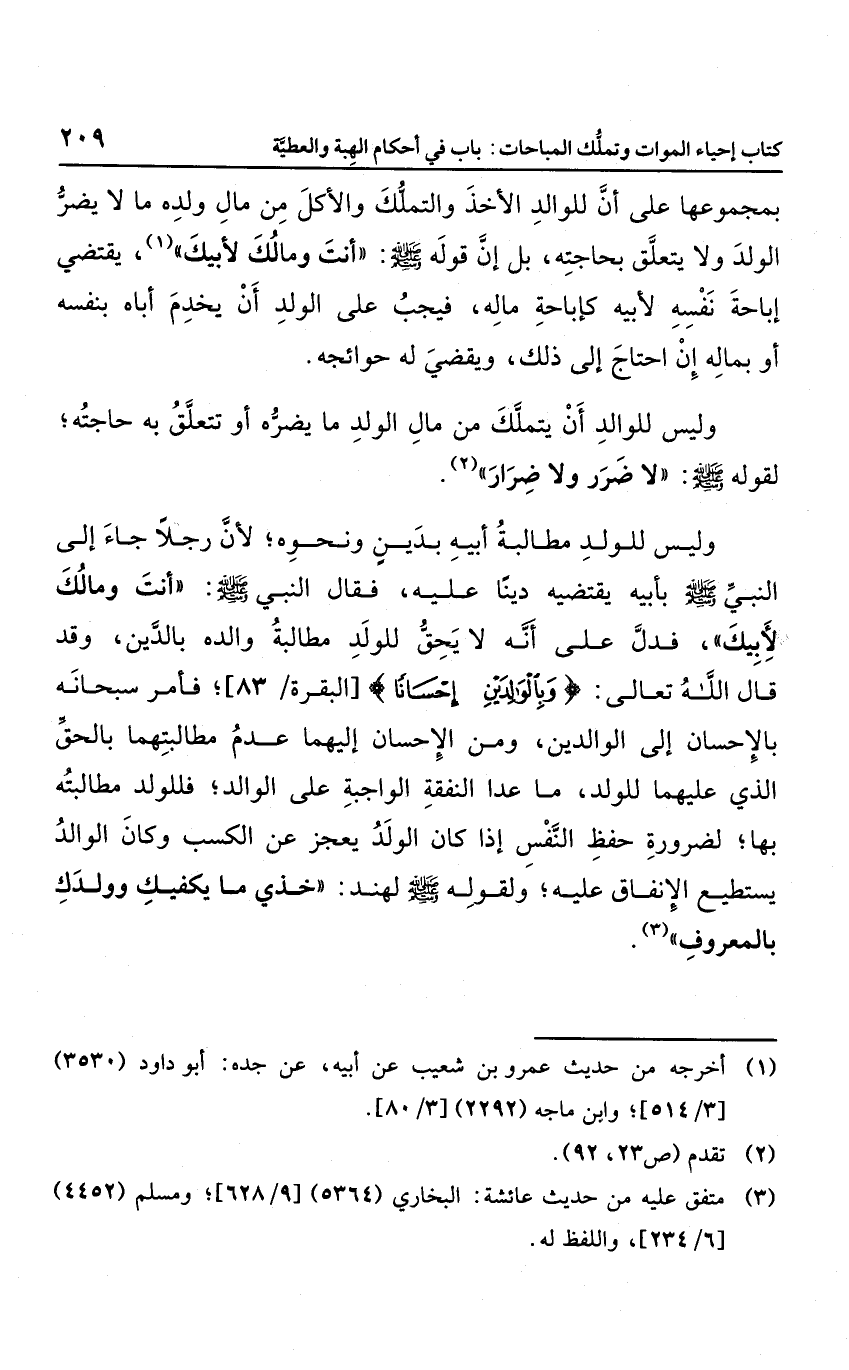 كتاب إحياء الموات وتملُّك المباحات: باب في أحكام الهِبة والعطيَّة ٢٠٩
بمجموعها على أنَّ للوالدِ الأخذَ والتملُّكَ والأكلَ مِن مالِ ولده ما لا يضرُّ
الولدَ ولا يتعلَّق بحاجتِه، بل إنَّ قولَه ﷺ: «أنتَ ومالُكَ لأبيكَ»(١)، يقتضي
إباحةَ نَفْسِهِ لأبيه كإباحةِ مالِه، فيجبُ على الولدِ أَنْ يخدِمَ أباه بنفسه
أو بمالِه إِنْ احتاجَ إلى ذلك، ويقضيَ له حوائجه.
وليس للوالدِ أَنْ يتملَّكَ من مالِ الولدِ ما يضرُّه أو تتعلَّقُ به حاجتُه؛
لقوله ﷺ: «لا ضَرَر ولا ضِرَارَ»(٢).
وليس للولدِ مطالبةُ أبيهِ بدَينٍ ونحوِه؛ لأنَّ رجلاً جاءَ إلى
النبيِّ ﷺ بأبيه يقتضيه دينًا عليه، فقال النبي ﷺ: «أنتَ ومالُكَ
لِأَبِيكَ»، فدلَّ على أَنَّه لا يَحِقُّ للولَدِ مطالبةُ والده بالدَّين، وقد
قال اللَّهُ تعالى: ﴿وَبِٱلْوَٰلِدَيْنِ إِحْسَانًا﴾ [البقرة/ ٨٣]؛ فأمر سبحانَه
بالإِحسان إلى الوالدين، ومن الإِحسان إليهما عدمُ مطالبتِهما بالحقِّ
الذي عليهما للولد، ما عدا النفقةِ الواجبةِ على الوالد؛ فللولد مطالبتُه
بها؛ لضرورةِ حفظِ النَّفْسِ إذا كان الولَدُ يعجز عن الكسب وكانَ الوالدُ
يستطيع الإِنفاق عليه؛ ولقولِه ﷺ لهند: «خذي ما يكفيكِ وولدَكِ
بالمعروفِ»(٣).
(١) أخرجه من حديث عمرو بن شعيب عن أبيه، عن جده: أبو داود (٣٥٣٠)
[٣/ ٥١٤]؛ وابن ماجه (٢٢٩٢) [٣/ ٨٠].
(٢) تقدم (ص٢٣، ٩٢).
(٣) متفق عليه من حديث عائشة: البخاري (٥٣٦٤) [٩/ ٦٢٨]؛ ومسلم (٤٤٥٢)
[٦/ ٢٣٤]، واللفظ له.